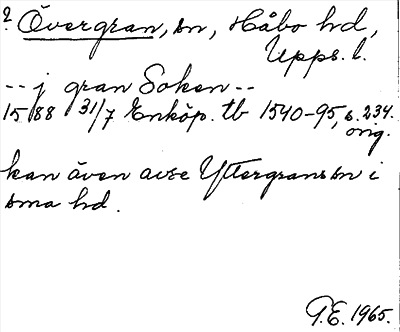 ? Övergran, sn, Håbo hd,
Upps. l.
-- j gran Soken --
1588 31/7 Enköp. tb 1540-95, s. 234.
orig.
kan även avse Yttergrans sn i
sma hd.
T.E. 1965.